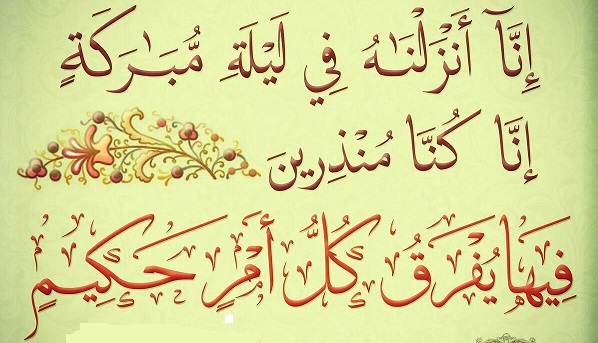 إِنَّآ أَنْزَلْنَاهُ فِي لَيْلَةٍ مُّبَارَكَةٍ
إِنَّا كُنَّا مُنْذِرِينَ
فِيهَا يُفْرَقُ كُلُّ أَمْرٍ حَكِيمٍ